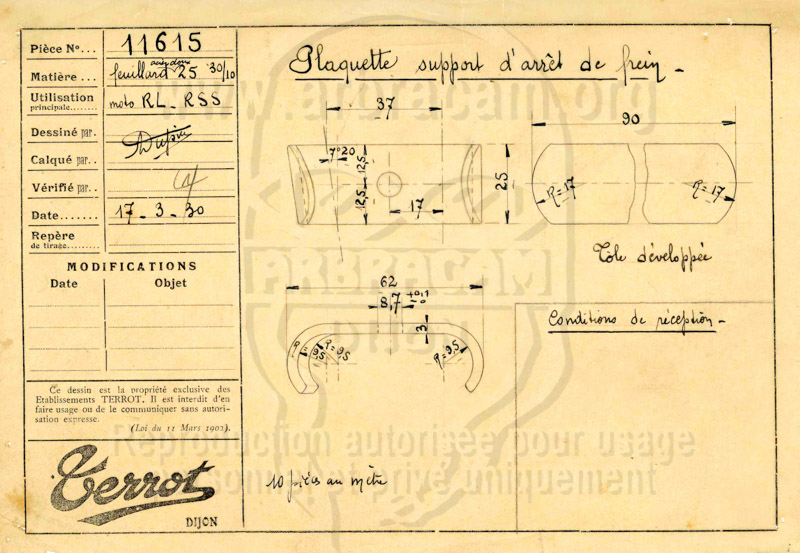 Pièce N°... 11615
Matière... feuillard 25 30/10
Utilisation
principale........ moto RL - RSS
Dessiné par.
Calqué par..
Vérifié par..
Date....... 17-3-30
Repère
de tirage........
MODIFICATIONS
Date Objet
Ce dessin est la propriété exclusive des
Etablissements TERROT. Il est interdit d'en
faire usage ou de le communiquer sans autori-
sation expresse.
(Loi du 11 Mars 1902).
Terrot
DIJON
Plaquette support d'arrêt de frein -
www.arbracam.org
37
90
7°20
12,5
12,5
17
25
R=17
R=17
Tôle développée
ARBRACAM
DIJON
62
8,7 +0,1
-0
3
R=9,5
R=9,5
Conditions de réception -
Reproduction autorisée pour usage
personnel et privé uniquement
10 pièces au mètre